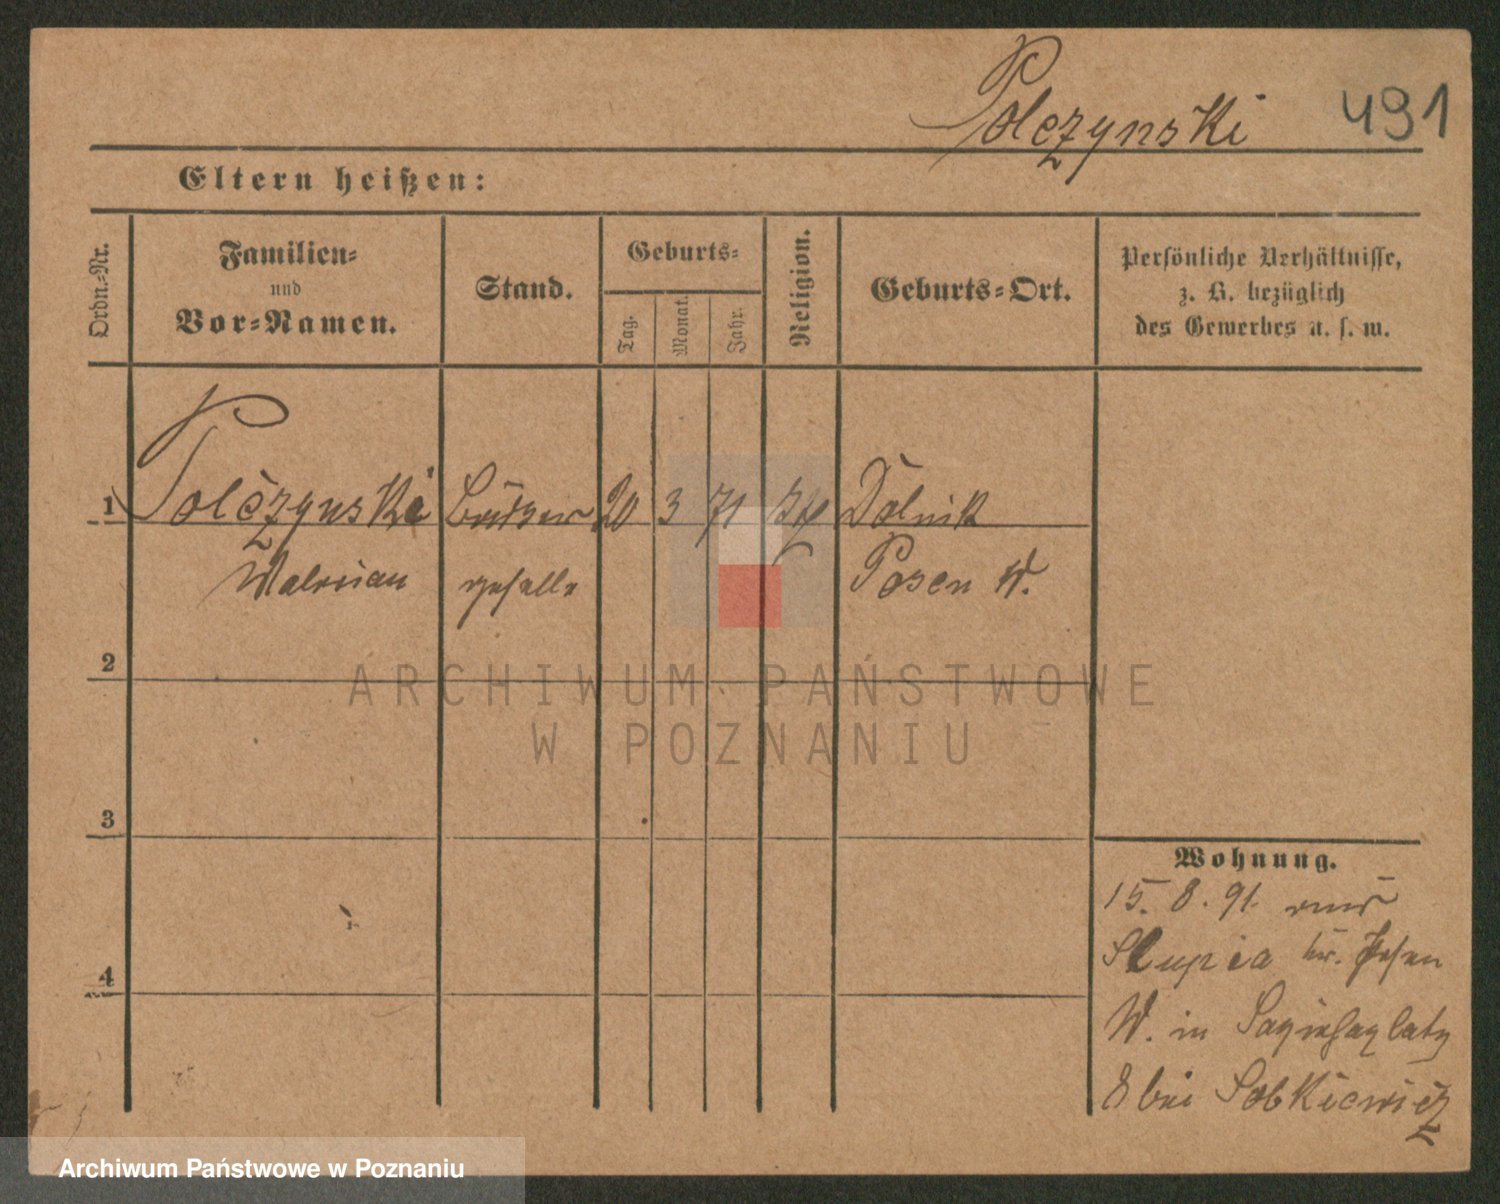 Polczynski 491
Eltern heißen:
Ordn.-Nr.
Familien-
und
Vor-Namen.
Stand.
Geburts-
Tag.
Monat.
Jahr.
Religion.
Geburts-Ort.
Persönliche Verhältnisse,
z. B. bezüglich
des Gewerbes u. s. w.
1 Polczynski 20 3 71 Dolnik
Walerian geselle Posen W.
2
ARCHIWUM PAŃSTWOWE
W POZNANIU
3
Wohnung.
15. 8. 91. aus
Slupia Kr. Posen
4
W. in Sapiehaplatz
8 bei Sobkiewicz
Archiwum Państwowe w Poznaniu